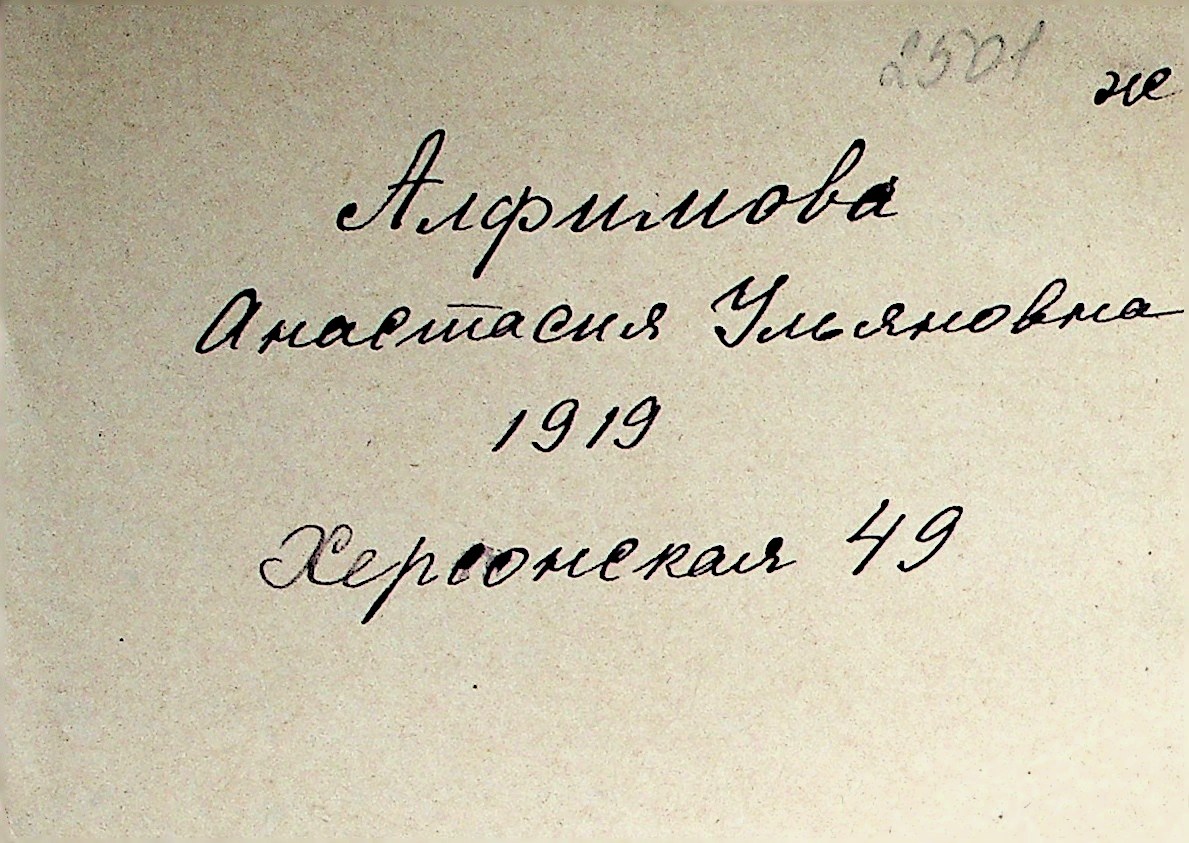 2501 ж
Алфимова
Анастасия Ульяновна
1919
Херсонская 49